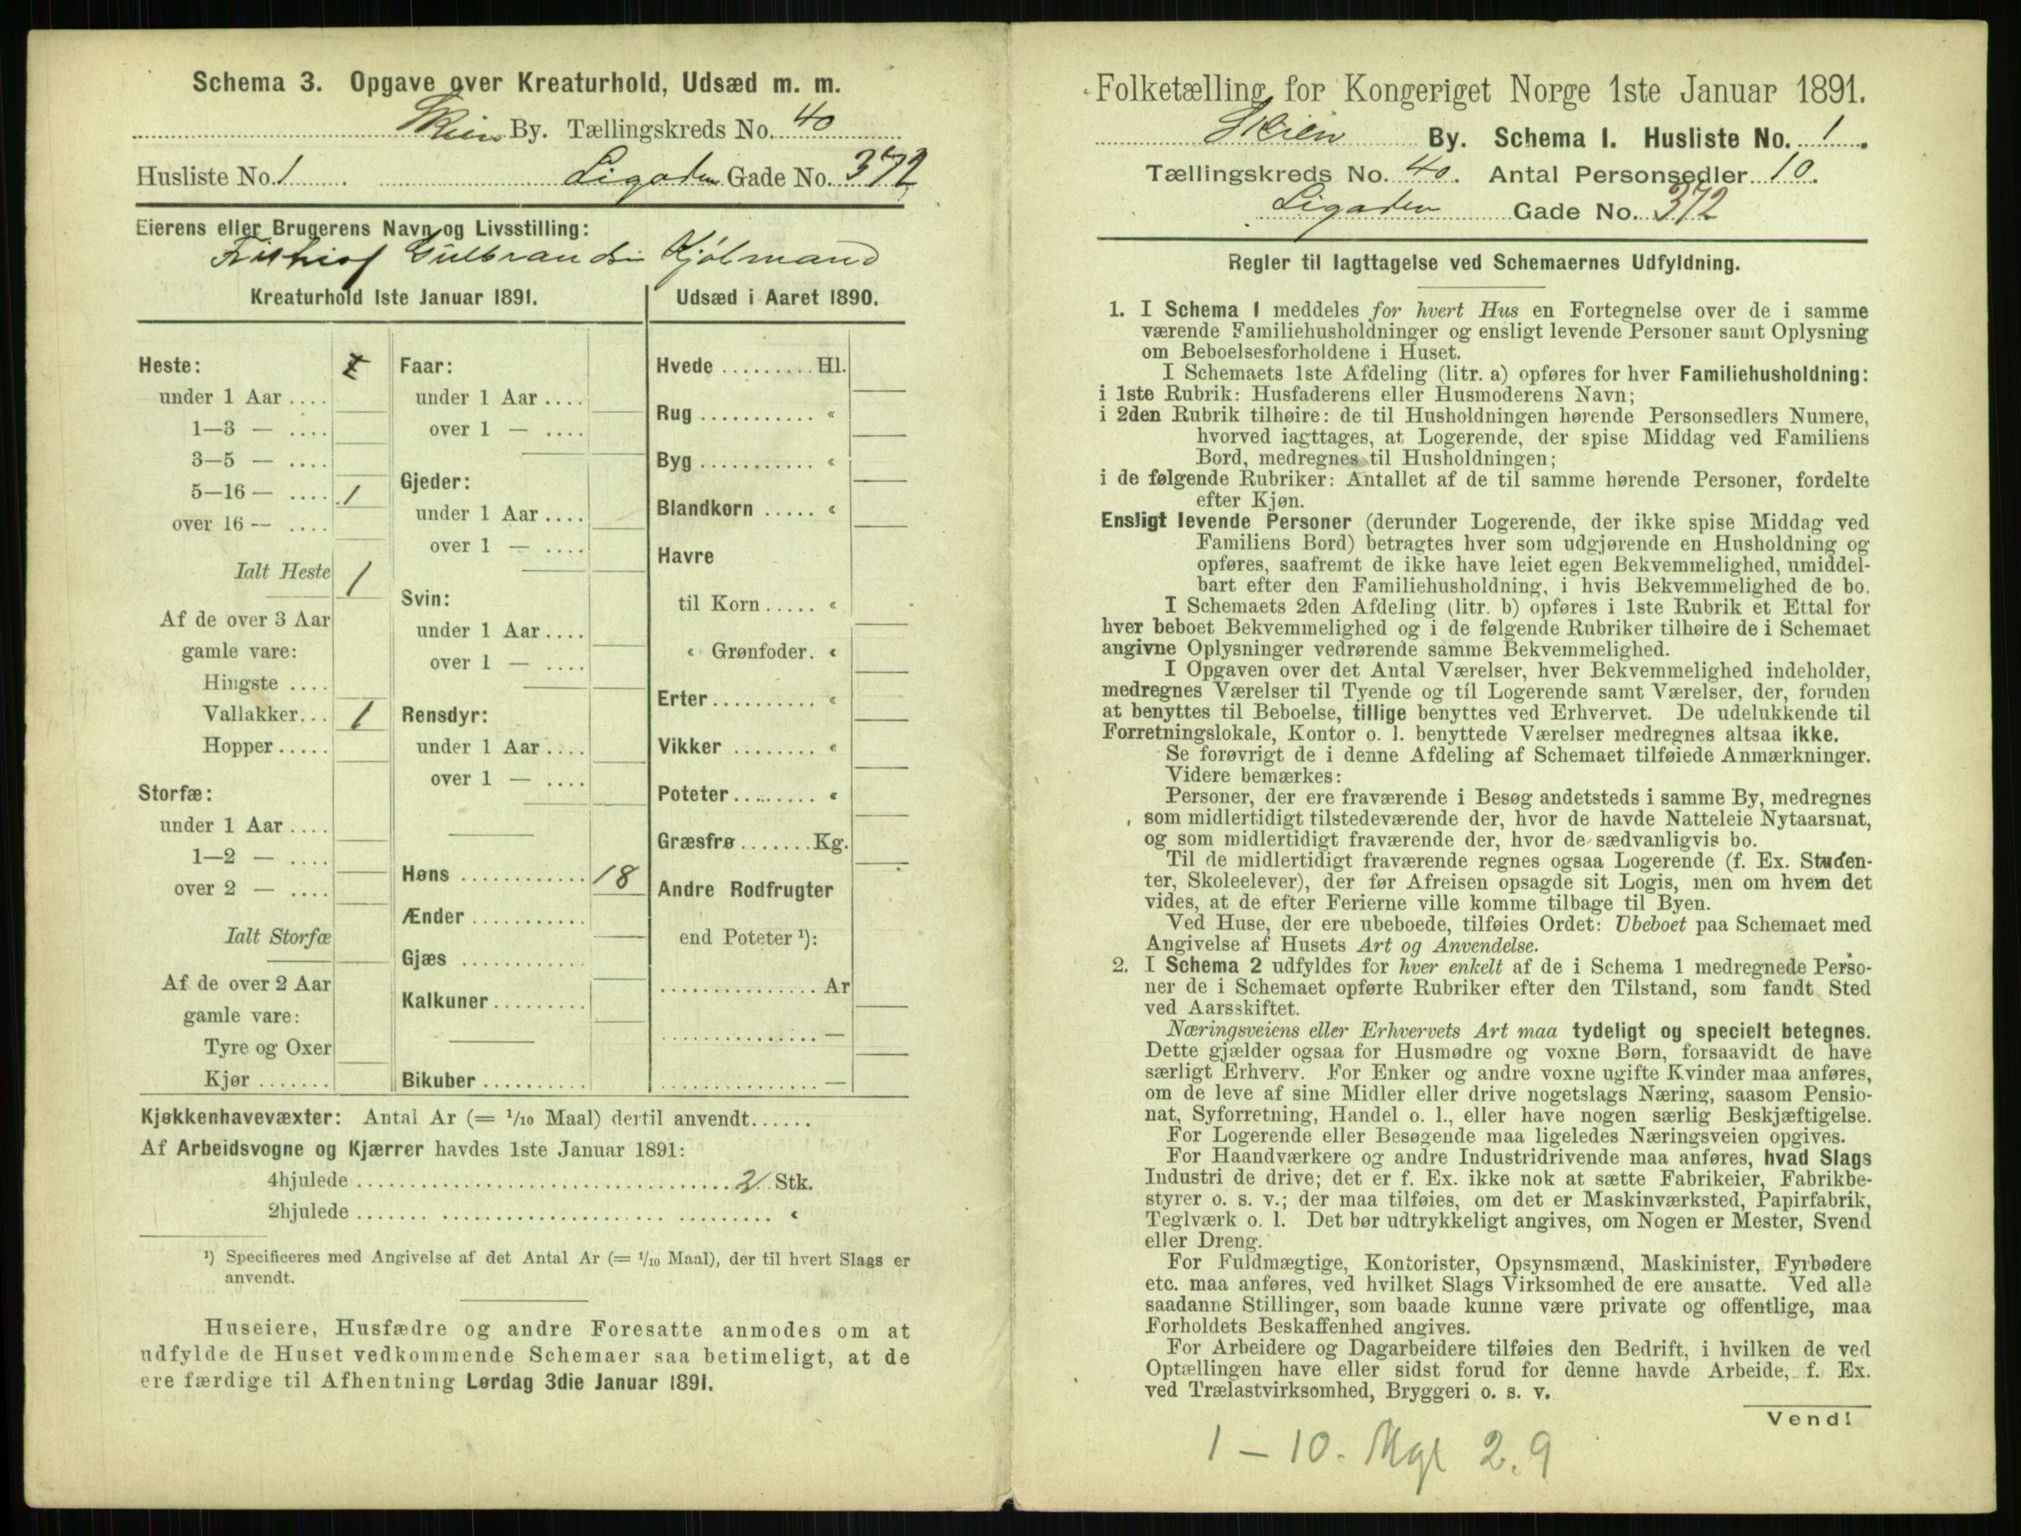 Schema 3. Opgave over Kreaturhold, Udsæd m. m.
Skien By. Tællingskreds No. 40
Husliste No. 1 Ligaden Gade No. 372
Eierens eller Brugerens Navn og Livsstilling:
Frithiof Gulbrandsen Kjølmand
Kreaturhold 1ste Januar 1891.
Heste:
under 1 Aar ....
1—3 — ....
3—5 — ....
5—16 — .... 1
over 16 — ....
Ialt Heste 1
Af de over 3 Aar
gamle vare:
Hingste ....
Vallakker... 1
Hopper.....
Storfæ:
under 1 Aar ....
1—2 — ....
over 2 — ....
Ialt Storfæ
Af de over 2 Aar
gamle vare:
Tyre og Oxer
Kjør .......
Faar:
under 1 Aar ....
over 1 — ....
Gjeder:
under 1 Aar ....
over 1 — ....
Svin:
under 1 Aar ....
over 1 — ....
Rensdyr:
under 1 Aar ....
over 1 — ....
Høns ............ 18
Ænder ...........
Gjæs ............
Kalkuner.........
Bikuber ..........
Udsæd i Aaret 1890.
Hvede ......... Hl.
Rug ........... "
Byg ........... "
Blandkorn ..... "
Havre
til Korn ..... "
" Grønfoder. "
Erter.......... "
Vikker ........ "
Poteter........ "
Græsfrø ....... Kg.
Andre Rodfrugter
end Poteter ¹):
............... Ar
............... —
............... —
Kjøkkenhavevæxter: Antal Ar (= 1/10 Maal) dertil anvendt......
Af Arbeidsvogne og Kjærrer havdes 1ste Januar 1891:
4hjulede .................................. 2 Stk.
2hjulede .................................. "
¹) Specificeres med Angivelse af det Antal Ar (= 1/10 Maal), der til hvert Slags er
anvendt.
Huseiere, Husfædre og andre Foresatte anmodes om at
udfylde de Huset vedkommende Schemaer saa betimeligt, at de
ere færdige til Afhentning Lørdag 3die Januar 1891.
Folketælling for Kongeriget Norge 1ste Januar 1891.
Skien By. Schema 1. Husliste No. 1.
Tællingskreds No. 40. Antal Personsedler 10.
Ligaden Gade No. 372
Regler til Iagttagelse ved Schemaernes Udfyldning.
1. I Schema 1 meddeles for hvert Hus en Fortegnelse over de i samme
værende Familiehusholdninger og ensligt levende Personer samt Oplysning
om Beboelsesforholdene i Huset.
I Schemaets 1ste Afdeling (litr. a) opføres for hver Familiehusholdning:
i 1ste Rubrik: Husfaderens eller Husmoderens Navn;
i 2den Rubrik tilhøire: de til Husholdningen hørende Personsedlers Numere,
hvorved iagttages, at Logerende, der spise Middag ved Familiens
Bord, medregnes til Husholdningen;
i de følgende Rubriker: Antallet af de til samme hørende Personer, fordelte
efter Kjøn.
Ensligt levende Personer (derunder Logerende, der ikke spise Middag ved
Familiens Bord) betragtes hver som udgjørende en Husholdning og
opføres, saafremt de ikke have leiet egen Bekvemmelighed, umiddel-
bart efter den Familiehusholdning, i hvis Bekvemmelighed de bo.
I Schemaets 2den Afdeling (litr. b) opføres i 1ste Rubrik et Ettal for
hver beboet Bekvemmelighed og i de følgende Rubriker tilhøire de i Schemaet
angivne Oplysninger vedrørende samme Bekvemmelighed.
I Opgaven over det Antal Værelser, hver Bekvemmelighed indeholder,
medregnes Værelser til Tyende og til Logerende samt Værelser, der, foruden
at benyttes til Beboelse, tillige benyttes ved Erhvervet. De udelukkende til
Forretningslokale, Kontor o. l. benyttede Værelser medregnes altsaa ikke.
Se forøvrigt de i denne Afdeling af Schemaet tilføiede Anmærkninger.
Videre bemærkes:
Personer, der ere fraværende i Besøg andetsteds i samme By, medregnes
som midlertidigt tilstedeværende der, hvor de havde Natteleie Nytaarsnat,
og som midlertidigt fraværende der, hvor de sædvanligvis bo.
Til de midlertidigt fraværende regnes ogsaa Logerende (f. Ex. Studen-
ter, Skoleelever), der før Afreisen opsagde sit Logis, men om hvem det
vides, at de efter Ferierne ville komme tilbage til Byen.
Ved Huse, der ere ubeboede, tilføies Ordet: Ubeboet paa Schemaet med
Angivelse af Husets Art og Anvendelse.
2. I Schema 2 udfyldes for hver enkelt af de i Schema 1 medregnede Perso-
ner de i Schemaet opførte Rubriker efter den Tilstand, som fandt Sted
ved Aarsskiftet.
Næringsveiens eller Erhvervets Art maa tydeligt og specielt betegnes.
Dette gjælder ogsaa for Husmødre og voxne Børn, forsaavidt de have
særligt Erhverv. For Enker og andre voxne ugifte Kvinder maa anføres,
om de leve af sine Midler eller drive nogetslags Næring, saasom Pensio-
nat, Syforretning, Handel o. l., eller have nogen særlig Beskjæftigelse.
For Logerende eller Besøgende maa ligeledes Næringsveien opgives.
For Haandværkere og andre Industridrivende maa anføres, hvad Slags
Industri de drive; det er f. Ex. ikke nok at sætte Fabrikeier, Fabrikbe-
styrer o. s. v.; der maa tilføies, om det er Maskinværksted, Papirfabrik,
Teglværk o. l. Det bør udtrykkeligt angives, om Nogen er Mester, Svend
eller Dreng.
For Fuldmægtige, Kontorister, Opsynsmænd, Maskinister, Fyrbødere
etc. maa anføres, ved hvilket Slags Virksomhed de ere ansatte. Ved alle
saadanne Stillinger, som baade kunne være private og offentlige, maa
Forholdets Beskaffenhed angives.
For Arbeidere og Dagarbeidere tilføies den Bedrift, i hvilken de ved
Optællingen have eller sidst forud for denne havde Arbeide, f. Ex.
ved Trælastvirksomhed, Bryggeri o. s. v.
Vend!
1 – 10. Mgl 2.9